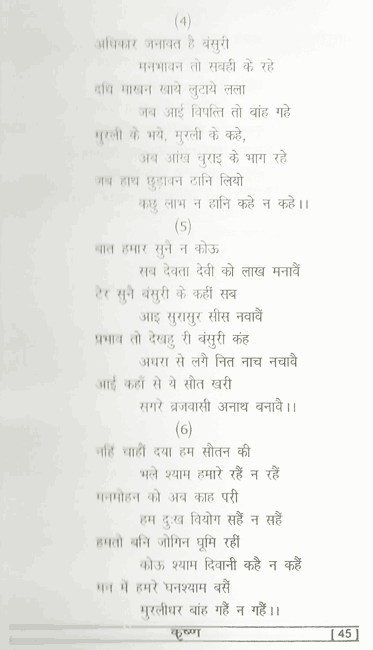 (4)
अधिकार जनावत है बंसुरी
मनभावन तो सबही के रहे
दधि माखन खाये लुटाये लला
जब आई विपत्ति तो बांह गहे
मुरली के भये, मुरली के कहे,
अब आंख चुराइ के भाग रहे
जब हाथ छुड़ावन ठानि लियो
कछु लाभ न हानि कहे न कहे।।
(5)
बात हमार सुनै न कोऊ
सब देवता देवी को लाख मनावैं
टेर सुनै बंसुरी के कहीं सब
आइ सुरासुर सीस नवावैं
प्रभाव तो देखहु री बंसुरी कंह
अधरा से लगै नित नाच नचावै
आई कहाँ से ये सौत खरी
सगरे ब्रजवासी अनाथ बनावै।।
(6)
नहिं चाहीं दया हम सौतन की
भले श्याम हमारे रहैं न रहैं
मनमोहन को अब काह परी
हम दुःख वियोग सहैं न सहैं
हमतो बनि जोगिन घूमि रहीं
कोऊ श्याम दिवानी कहै न कहैं
मन में हमरे घनश्याम बसैं
मुरलीधर बांह गहैं न गहैं।।
कृष्ण [ 45 ]